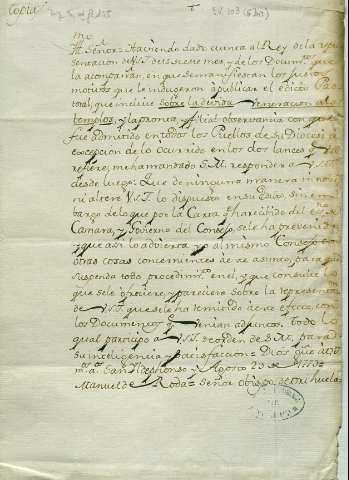 Copia
Yll.mo
Señor: Haviendo dado cuenta al Rey de la repre
sentacion de V.S.Y. de siete de este mes, y de los Docum.tos que
la acompañan, en que se manifiestan los justos
motivos que le induxeron a publicar el edicto Pas
toral, que incluye sobre la devida Veneracion a los
templos, y la pronta, y fiel observancia con que
fue admitido en todos los Pueblos de su Diocesi a
excepcion de lo ocurrido en los dos lances que
refiere, me ha mandado S.M. responder a V.S.Y.
desde luego: Que de ninguna manera in
ni altere V.S.Y. lo dispuesto en su Edicto, sin em
bargo de lo que por la Carta q.e ha recibido del
Camara, y Govierno del Consejo se le ha prevenido
y que asi lo advierta yo al mismo Consejo
otras cosas concernientes de este asunto, para que
suspenda todo procedim.to en el, y que consulte lo
que se le ofreciere, y pareciere sobre la represent.on
de V.S.Y. que se le ha remitido a este efecto, con
los Documentos q.e venian adjuntos. Todo lo
qual participo a V.S.Y. de orden de S.M. para
su inteligencia y satisfaccion = Dios gue a V.S.Y.
m.s a.s San Ildephonso y Agosto 23 de
Manuel de Roda = Señor obispo de Orihuela